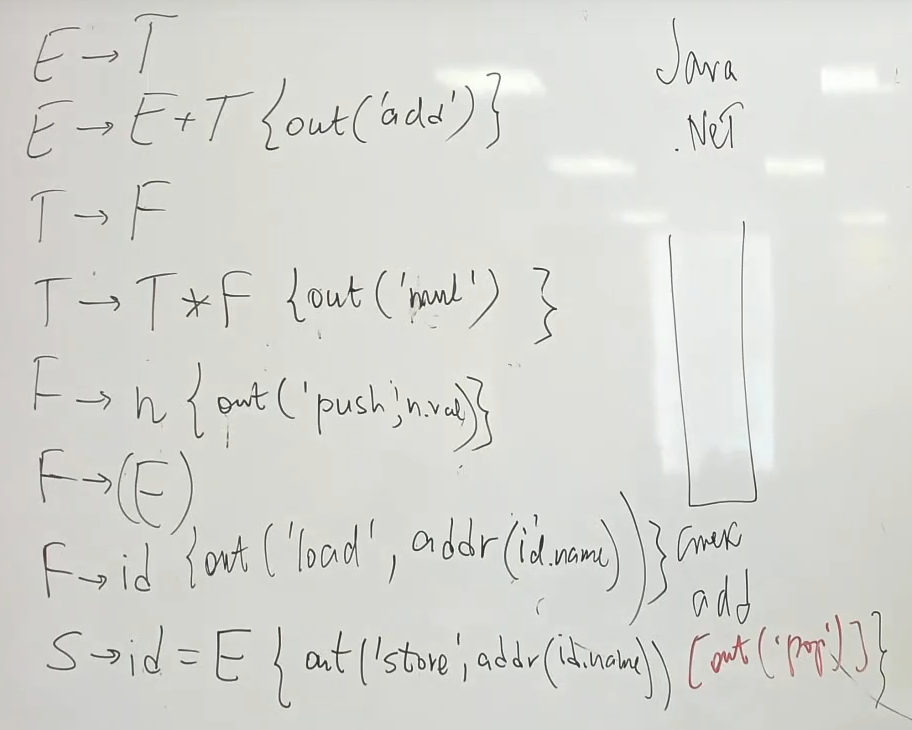 E → T
E → E + T {out('add')}
T → F
T → T * F {out('mul') }
F → n {out('push', n.val)}
F → (E)
F → id {out('load', addr(id.name))}
S → id = E {out('store', addr(id.name)) [out('pop')]}
Java
.NeT
стек
add